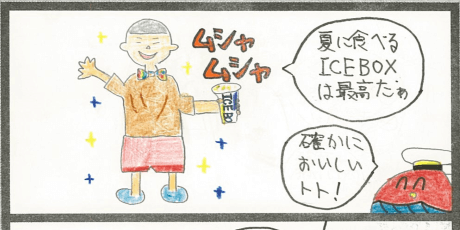 ムシャ
ムシャ
夏に食べる
ICEBOX
は最高だぁ
ICEBO
確かに
おいしい
トト!